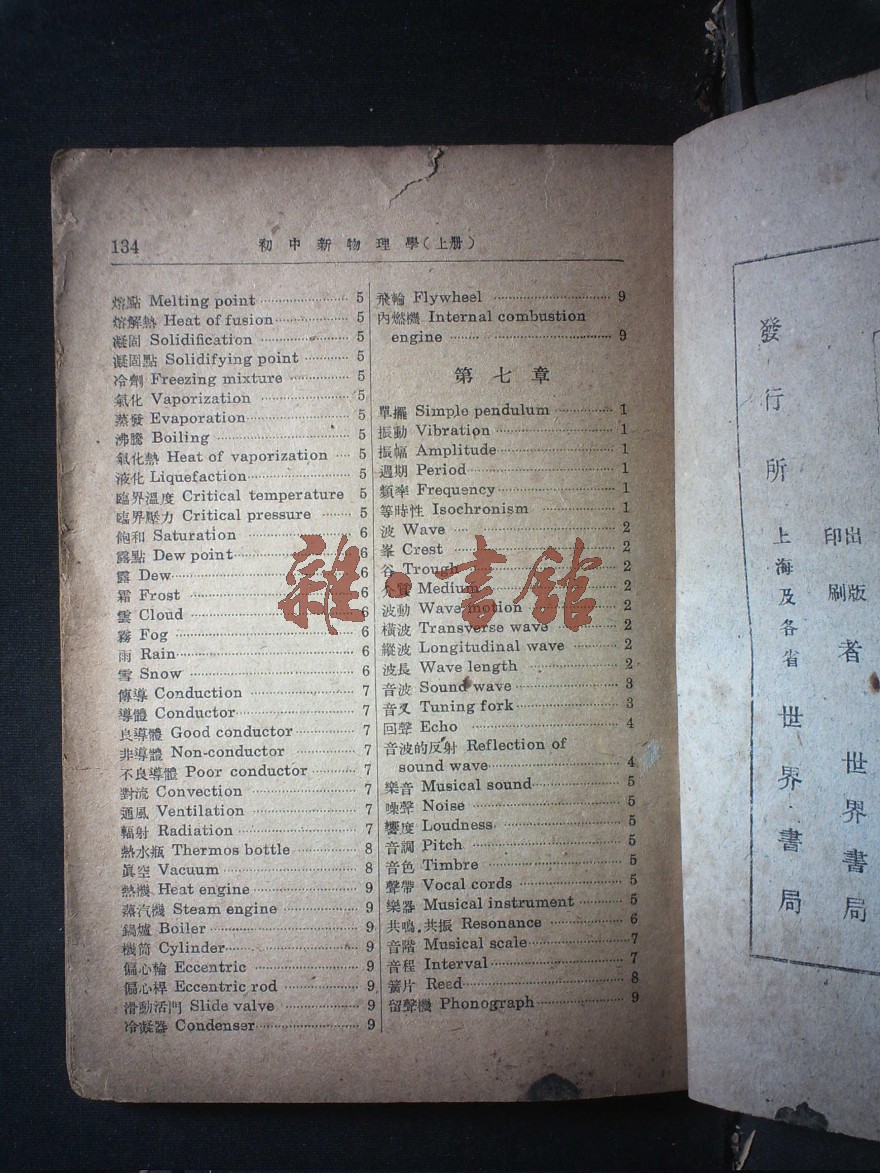 134
初中新物理學(上册)
熔點 Melting point 5
熔解熱 Heat of fusion 5
凝固 Solidification 5
凝固點 Solidifying point 5
冷劑 Freezing mixture 5
氣化 Vaporization 5
蒸發 Evaporation 5
沸騰 Boiling 5
氣化熱 Heat of vaporization 5
液化 Liquefaction 5
臨界溫度 Critical temperature 5
臨界壓力 Critical pressure 5
飽和 Saturation 6
露點 Dew point 6
露 Dew 6
霜 Frost 6
雲 Cloud 6
霧 Fog 6
雨 Rain 6
雪 Snow 6
傳導 Conduction 7
導體 Conductor 7
良導體 Good conductor 7
非導體 Non-conductor 7
不良導體 Poor conductor 7
對流 Convection 7
通風 Ventilation 7
輻射 Radiation 7
熱水瓶 Thermos bottle 8
眞空 Vacuum 8
熱機 Heat engine 9
蒸汽機 Steam engine 9
鍋爐 Boiler 9
機筒 Cylinder 9
偏心輪 Eccentric 9
偏心桿 Eccentric rod 9
滑動活門 Slide valve 9
冷凝器 Condenser 9
飛輪 Flywheel 9
內燃機 Internal combustion
engine 9
第七章
單擺 Simple pendulum 1
振動 Vibration 1
振幅 Amplitude 1
週期 Period 1
頻率 Frequency 1
等時性 Isochronism 1
波 Wave 2
峯 Crest 2
谷 Trough 2
介質 Medium 2
波動 Wave motion 2
橫波 Transverse wave 2
縱波 Longitudinal wave 2
波長 Wave length 2
音波 Sound wave 3
音叉 Tuning fork 3
回聲 Echo 4
音波的反射 Reflection of
sound wave 4
樂音 Musical sound 5
噪聲 Noise 5
響度 Loudness 5
音調 Pitch 5
音色 Timbre 5
聲帶 Vocal cords 5
樂器 Musical instrument 5
共鳴,共振 Resonance 6
音階 Musical scale 7
音程 Interval 7
簧片 Reed 8
留聲機 Phonograph 9
雜·書館
出版
印刷者 世界書局
發行所 上海及各省 世界書局